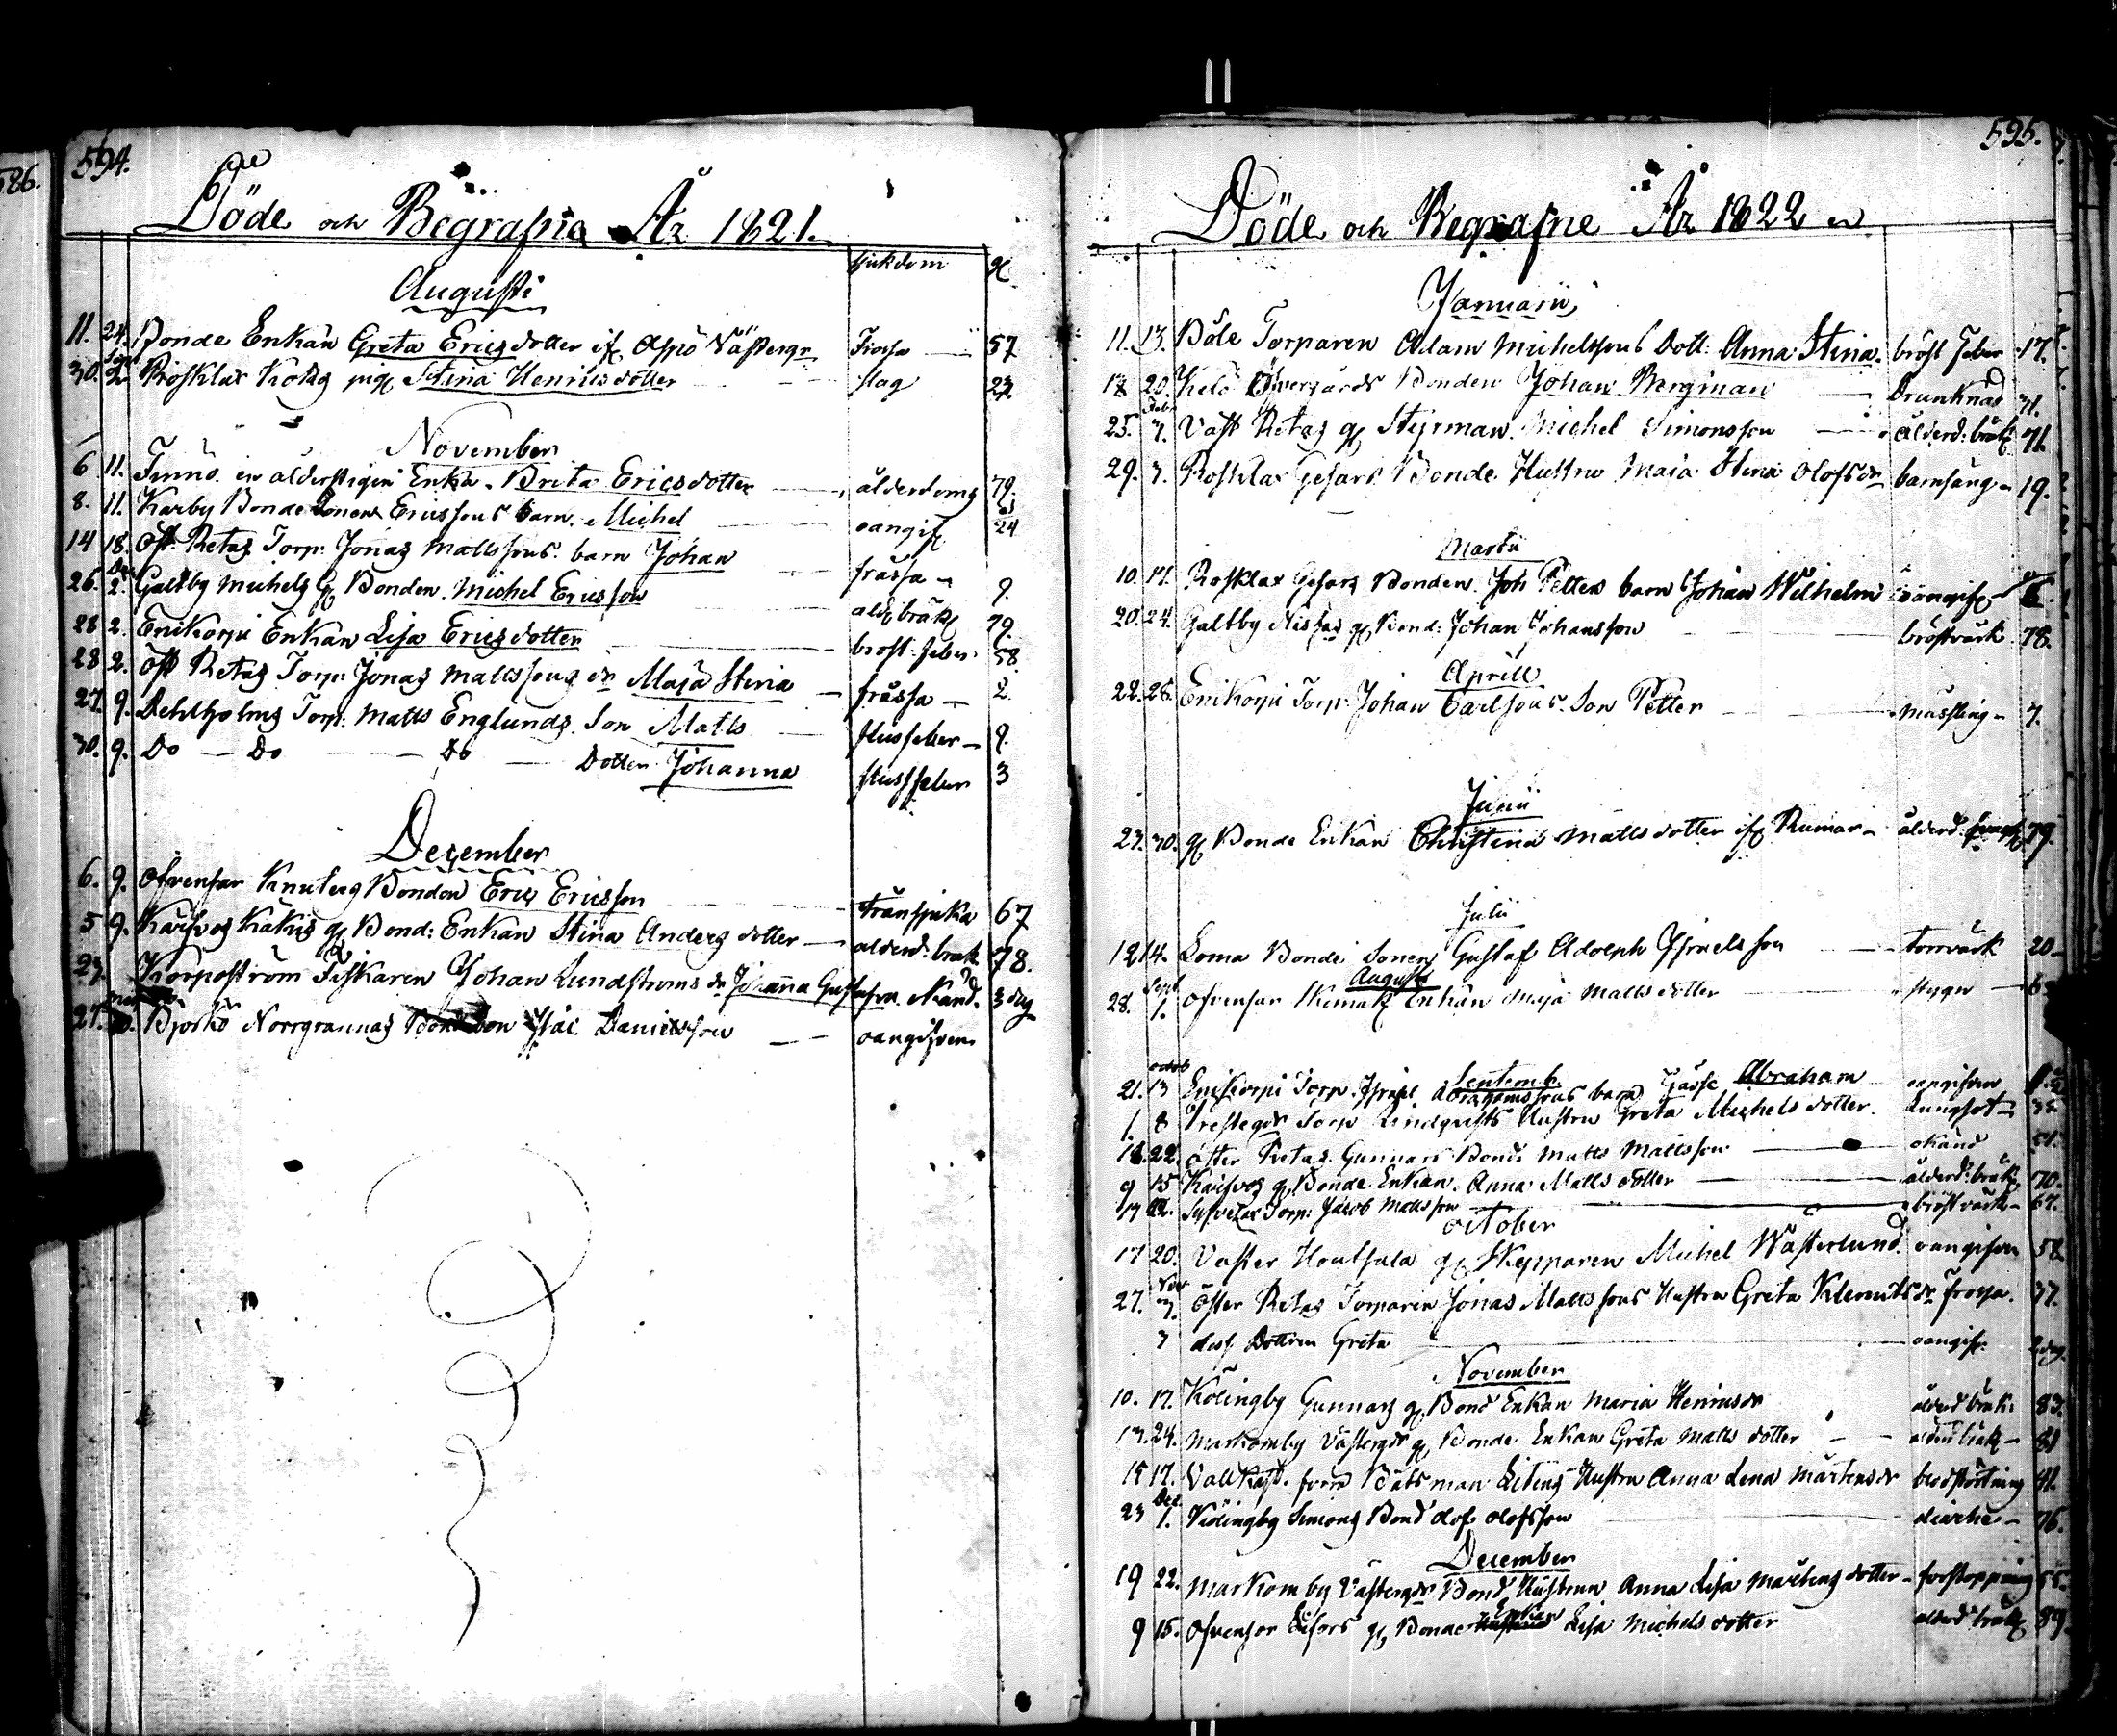 586.
594.
Döde och Begrafne År 1821.
sjukdom
Augusti
11. 24. Bonde Enkan Greta Ericsdotter if. Aspö Västergr Frossa 57
30. Sept 2 Rosklax Kokes pig. Stina Henricsdotter slag 23.
November
6 11. Finnö en ålderstigen Enka Brita Ericsdotter ålderdoms 79.
8. 11. Karby Bonde Sonens Ericssons barn Michel oangif. 24
14 18. Öst. Retas Torp: Jonas Mattssons barn Johan frässa 9.
26. Dec 2. Galtby Michels G. Bonden Michel Ericsson ald. bräk. 79.
28 2. Enikorpi Enkan Lisa Ericsdotter bröst-feber 58.
28 2. Öst Retas Torp: Jonas Mattssons dr Maja Stina frässa 2.
27. 9. Dehlholms Torp: Matts Englunds Son Matts flussfeber 9.
30. 9. Do Do Do Dotter Johanna flussfeber 3
December
6. 9. Ofvensor Knuters Bonden Eric Ericsson tränsjuka 67
5 9. Kaifvos Käkis g. Bond: Enkan Stina Anders dotter alderd: bräk 78.
23. Korpoström Fiskaren Johan Lundströms dr Johanna Gustafva Okänd. 3 dag
27. Björkö Norrgrannas Isac Danielsson oangifven
595.
Döde och Begrafne År 1822
Januarii
11. 13. Böle Torparen Adam Michelssons Dott: Anna Stina. bröst Feber 17.
17 20. Kelö Öfvergårds Bonden Johan Bergman Drunknad 31.
25. Febr 3. Väst Retas g. Styrman Michel Simonsson ålderd: bräk. 71.
29. 3. Rosklax Gesars Bonde Hustru Maja Stina Olofsdr barnsäng 19.
Martii
10. 17. Rosklax Gesars Bonden Joh Petters barn Johan Wilhelm oangif.
20. 24. Galtby Nissas g. Bond: Johan Johansson bröstvärk 78.
Aprill
22. 28. Enikorpi Torp: Johan Carlsons Son Petter mässling 7.
Junii
23. 30. g. Bonde Enkan Christina Mattsdotter if. Rumar ålderd: 79.
Julii
12 14. Loma Bonde Sonen Gustaf Adolph Israelsson torrvärk 20
Augusti
28. Sept 1. Ofvensor Enkan Maja Matts dotter stygn
Septemb.
21. octob 13 Enikorpi Torp. Israel Abrahamssons barn Gosse Abraham oangifven
1. 8 Prestegds Torp Lindqvists Hustru Greta Michels dotter. Lungsot 35.
18. 22. öster Retas Gunnars Bond: Matts Mattsson okänd 51.
9 15 Kaifvos g. Bonde Enkan Anna Matts dotter ålderd: bräk 70.
17 22. Torp: Jacob Mattsson bröstvärk 67.
October
17 20. Väster Houtsala g. Skepparen Michel Wästerlund oangifven 58
27. Nov 3. Öster Retas Torparen Jonas Mattssons Hustru Greta Klemetsdr frossa. 37.
3 dess Dottren Greta oangif. 2 dag.
November
10. 17. Kölingby Gunnars g. Bond Enkan Maria Henricsdr ålderd bräk: 83.
13. 24. Markomby Västergds g. Bonde Enkan Greta Matts dotter ålderd bräk 81
15 17. Vallkast. förre Båtsman Litens Hustru Anna Lena Mårtensdr blodstörtning 41.
23 Dec 1. Kölingby Simons Bond Olof Olofsson diarhe 76.
December
19 22. Markomby Västergds Bond Hustrun Anna Lisa Mårtens dotter förstoppning 55.
9 15. Ofvensor Eifors g. Bonde Enkan Lisa Michels dotter alderd bräk 89.